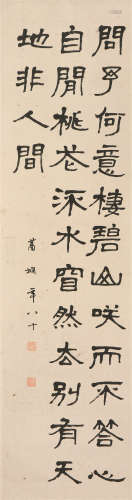 問予何意棲碧山咲而不答心
自閒桃花流水窅然去別有天
地非人間
年八十